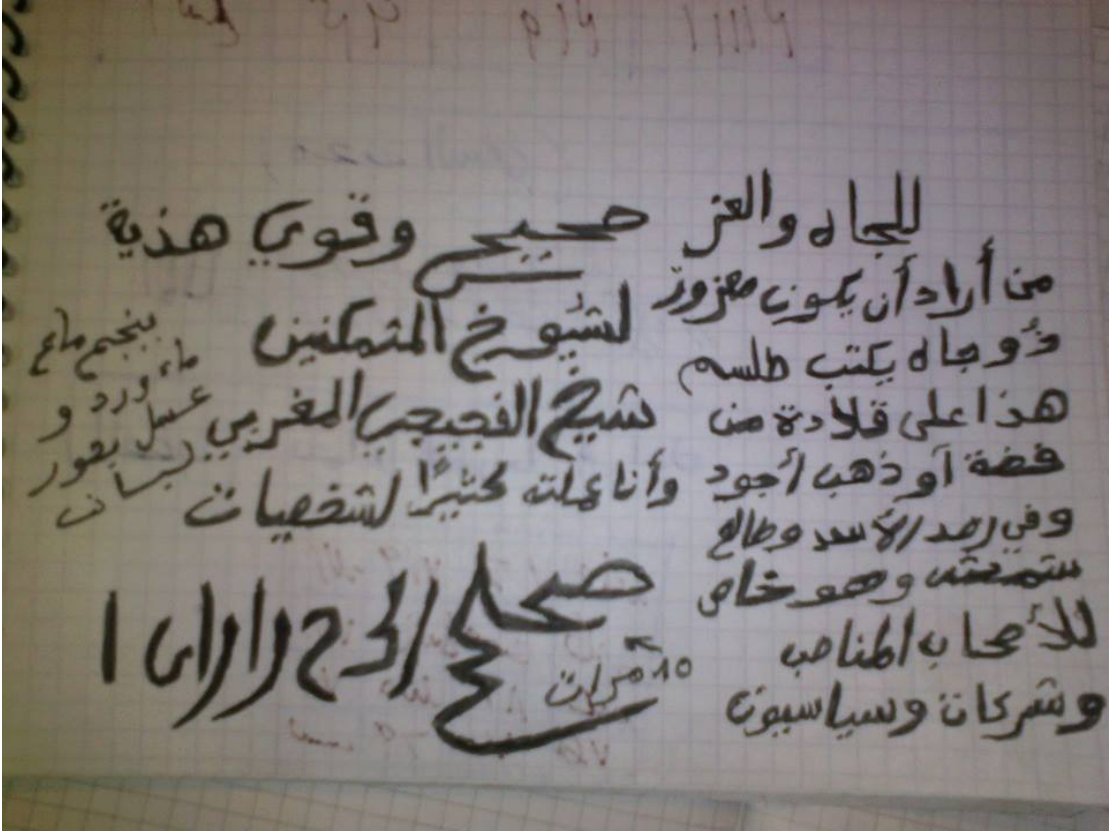 للجاه والعز
من أراد أن يكون معزوز
ذو جاه يكتب طلسم
هذا على قلادة من
فضة أو ذهب أجود
وفي رصد الأسد وطالع
شمسه وهو خاص
للأصحاب المناصب
وشركات وسياسيون
صحيح وقوي هذية
لشيورخ المتمكنين
شيخ الفجيجي المغربي
وأنا عملته كثيرًا لشخصيات
ماء ورد و
عسل بخور
10 مرات